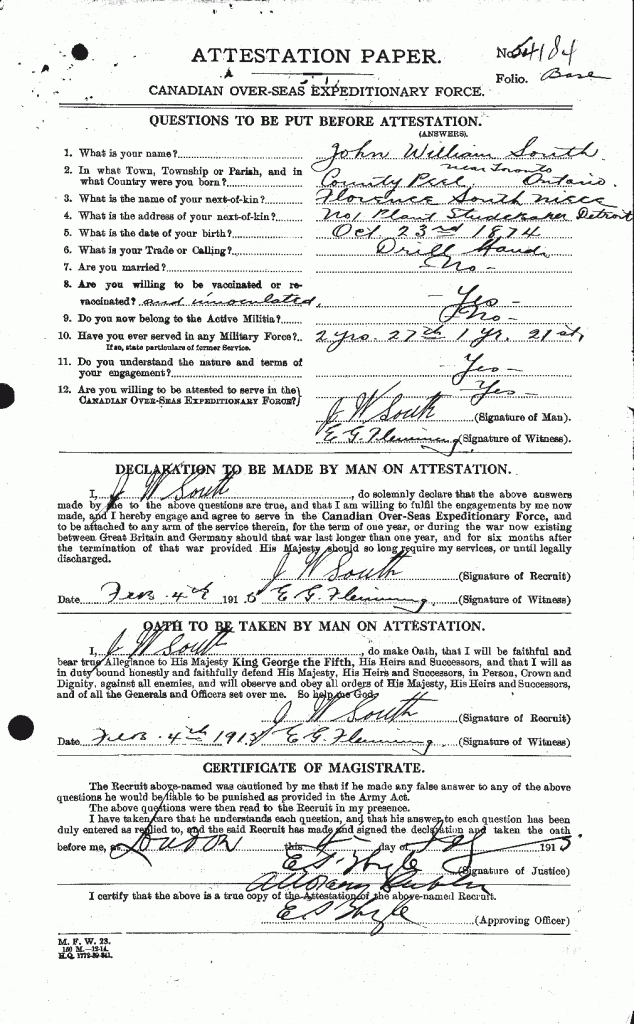 ATTESTATION PAPER.
No. 54184
Folio. Base
CANADIAN OVER-SEAS EXPEDITIONARY FORCE.
QUESTIONS TO BE PUT BEFORE ATTESTATION.
(ANSWERS).
1. What is your name? John William South
2. In what Town, Township or Parish, and in near Toronto
what Country were you born? County Peel Ontario
3. What is the name of your next-of-kin? Florence South niece
4. What is the address of your next-of-kin? No 1 Plant Studebaker Detroit
5. What is the date of your birth? Oct. 23rd 1874
6. What is your Trade or Calling? Drill Hand
7. Are you married? – No –
8. Are you willing to be vaccinated or re-
vaccinated? and innoculated, – Yes –
9. Do you now belong to the Active Militia? – No –
10. Have you ever served in any Military Force? 2 yrs. 27th 1 yr. 21st,
If so, state particulars of former Service.
11. Do you understand the nature and terms of
your engagement? – Yes –
12. Are you willing to be attested to serve in the
CANADIAN OVER-SEAS EXPEDITIONARY FORCE? – Yes –
J W South (Signature of Man).
E G Fleming (Signature of Witness).
DECLARATION TO BE MADE BY MAN ON ATTESTATION.
I, J W South, do solemnly declare that the above answers
made by me to the above questions are true, and that I am willing to fulfil the engagements by me now
made, and I hereby engage and agree to serve in the Canadian Over-Seas Expeditionary Force, and
to be attached to any arm of the service therein, for the term of one year, or during the war now existing
between Great Britain and Germany should that war last longer than one year, and for six months after
the termination of that war provided His Majesty should so long require my services, or until legally
discharged.
J W South (Signature of Recruit)
Date Feb. 4th 1915 E G Fleming (Signature of Witness)
OATH TO BE TAKEN BY MAN ON ATTESTATION.
I, J W South, do make Oath, that I will be faithful and
bear true Allegiance to His Majesty King George the Fifth, His Heirs and Successors, and that I will as
in duty bound honestly and faithfully defend His Majesty, His Heirs and Successors, in Person, Crown and
Dignity, against all enemies, and will observe and obey all orders of His Majesty, His Heirs and Successors,
and of all the Generals and Officers set over me. So help me God.
J W South (Signature of Recruit)
Date Feb. 4th 1915 E G Fleming (Signature of Witness)
CERTIFICATE OF MAGISTRATE.
The Recruit above-named was cautioned by me that if he made any false answer to any of the above
questions he would be liable to be punished as provided in the Army Act.
The above questions were then read to the Recruit in my presence.
I have taken care that he understands each question, and that his answer to each question has been
duly entered as replied to, and the said Recruit has made and signed the declaration and taken the oath
before me, at London this 4 day of Feby 1915.
(Signature of Justice)
I certify that the above is a true copy of the Attestation of the above-named Recruit.
(Approving Officer)
M. F. W. 23.
150 M.—12-14.
H.Q. 1772-39-841.